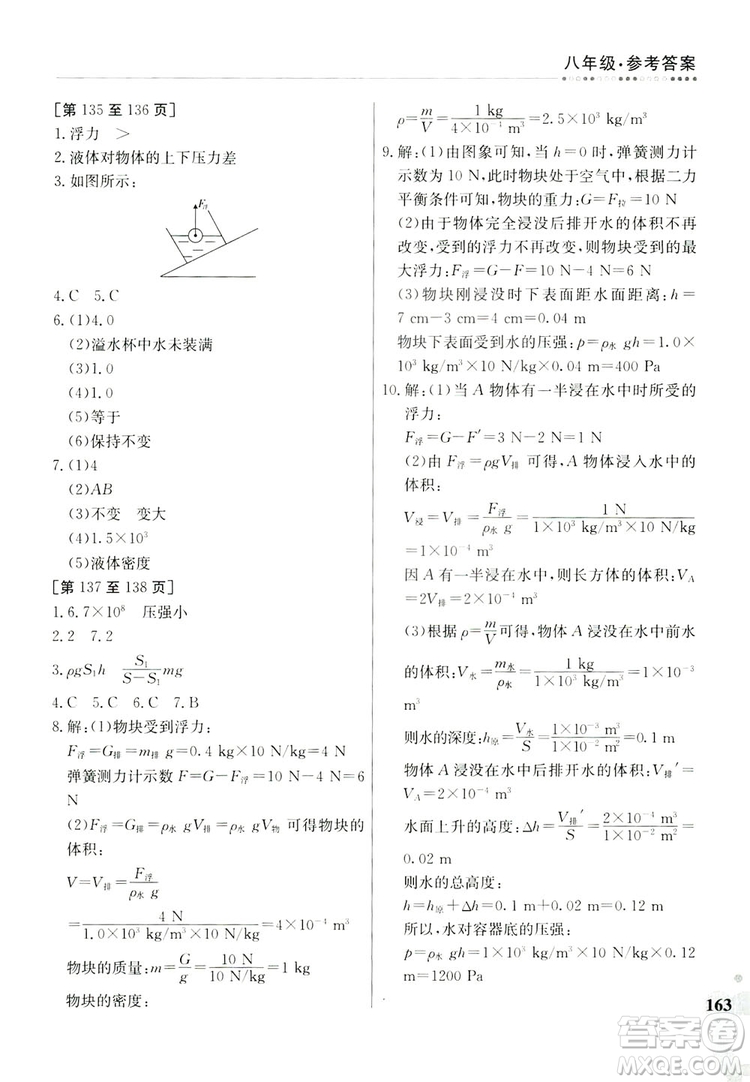 八年级·参考答案
[第 135 至 136 页]
1. 浮力　>
2. 液体对物体的上下压力差
3. 如图所示:
F浮
4. C　5. C
6. (1)4.0
(2)溢水杯中水未装满
(3)1.0
(4)1.0
(5)等于
(6)保持不变
7. (1)4
(2)AB
(3)不变　变大
(4)1.5×10³
(5)液体密度
[第 137 至 138 页]
1. 6.7×10⁸　压强小
2. 2　7.2
3. ρgS₁h　S₁/(S−S₁) mg
4. C　5. C　6. C　7. B
8. 解:(1)物块受到浮力:
F浮=G排=m排 g=0.4 kg×10 N/kg=4 N
弹簧测力计示数 F=G−F浮=10 N−4 N=6
N
(2)F浮=G排=ρ水 gV排=ρ水 gV物 可得物块的
体积:
V=V排=F浮/(ρ水 g)
=4 N/(1.0×10³ kg/m³×10 N/kg)=4×10⁻⁴ m³
物块的质量:m=G/g=10 N/(10 N/kg)=1 kg
物块的密度:
ρ=m/V=1 kg/(4×10⁻⁴ m³)=2.5×10³ kg/m³
9. 解:(1)由图象可知,当 h=0 时,弹簧测力计
示数为 10 N,此时物块处于空气中,根据二力
平衡条件可知,物块的重力:G=F拉=10 N
(2)由于物体完全浸没后排开水的体积不再
改变,受到的浮力不再改变,则物块受到的最
大浮力:F浮=G−F=10 N−4 N=6 N
(3)物块刚浸没时下表面距水面距离:h=
7 cm−3 cm=4 cm=0.04 m
物块下表面受到水的压强:p=ρ水 gh=1.0×
10³ kg/m³×10 N/kg×0.04 m=400 Pa
10. 解:(1)当 A 物体有一半浸在水中时所受的
浮力:
F浮=G−F′=3 N−2 N=1 N
(2)由 F浮=ρgV排 可得,A 物体浸入水中的
体积:
V浸=V排=F浮/(ρ水 g)=1 N/(1×10³ kg/m³×10 N/kg)
=1×10⁻⁴ m³
因 A 有一半浸在水中,则长方体的体积:V_A
=2V排=2×10⁻⁴ m³
(3)根据 ρ=m/V可得,物体 A 浸没在水中前水
的体积:V水=m水/ρ水=1 kg/(1×10³ kg/m³)=1×10⁻³
m³
则水的深度:h原=V水/S=1×10⁻³ m³/(1×10⁻² m²)=0.1 m
物体 A 浸没在水中后排开水的体积:V排′=
V_A=2×10⁻⁴ m³
水面上升的高度:Δh=V排′/S=2×10⁻⁴ m³/(1×10⁻² m²)=
0.02 m
则水的总高度:
h=h原+Δh=0.1 m+0.02 m=0.12 m
所以,水对容器底的压强:
p=ρ水 gh=1×10³ kg/m³×10 N/kg×0.12
m=1200 Pa
163